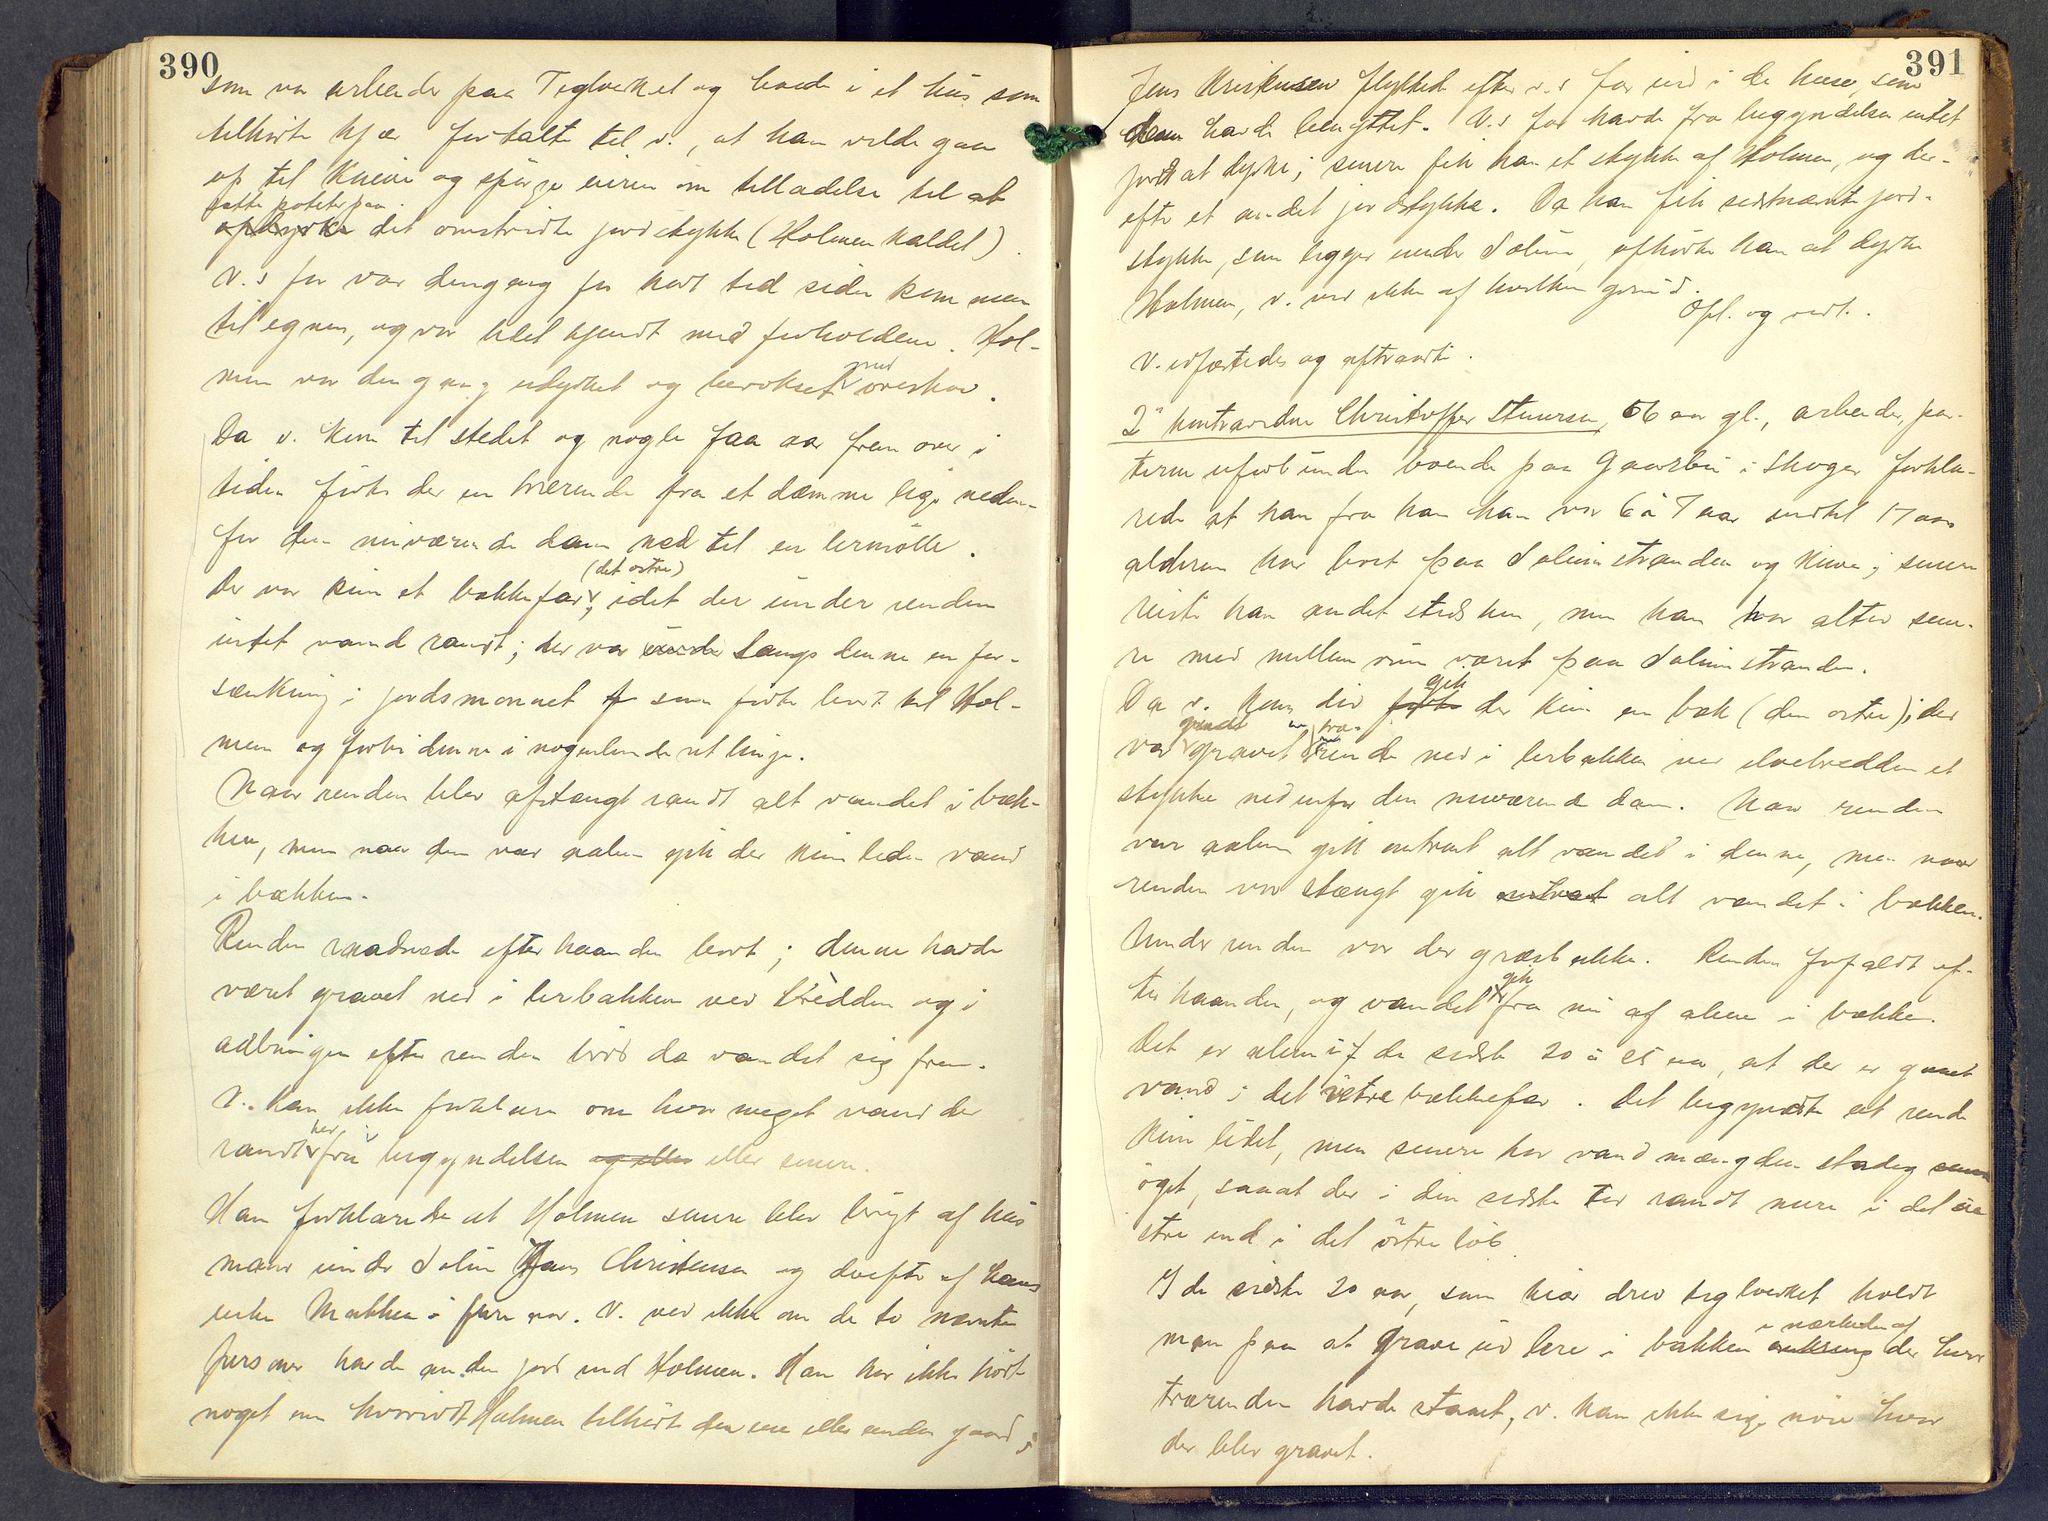 390
som var arbeider paa Teglverket og boede i et hus som
tilhørte Kjær fortalte til v., at han vilde gaa
op til Knive og spørge eieren om tilladelse til at
sætte poteter paa
opdyrke det omstridte jordstykke (Holmen kaldet).
V.s far var dengang for kort tid siden kommen
til egnen, og var lidet kjendt med forholdene. Hol-
men var dengang udyrket og bevokset med oreskov.
Da v. kom til stedet og nogle faa aar frem over i
tiden førte der en trærende fra et dæmme lige neden-
for den nuværende dam ned til en lermølle.
(det østre)
Der var kun et bækkefar, idet der under renden
intet vand randt; der var under langs denne en for-
sænkning i jordsmonnet som førte bort til Hol-
men og forbi denne i nogenlunde ret linje.
Naar renden blev afstængt randt alt vandet i bæk-
ken, men naar den var aaben gik der kun liden vand
i bækken.
Renden raadnede efterhaanden bort; denne havde
været gravet ned i lerbakken ved bredden og i
aabningen efter renden brød da vandet sig frem.
V. kan ikke forklare om hvor meget vand der
randt her fra begyndelsen og eller eller senere.
Han forklarede at Holmen senere blev brugt af hus
mand under Solum Jens Christensen og derefter af hans
enke Mathea i flere aar. V. ved ikke om de to nævnte
personer havde anden jord end Holmen. Han har ikke hørt
noget om hvorvidt Holmen tilhørte den ene eller anden gaard;
391
Jens Kristensen flyttede efter v.s far ind i de huse, som
denne havde benyttet. V.s far havde fra begyndelsen intet
jord at dyrke; senere fik han et stykke af Holmen, og der-
efter et andet jordstykke. Da han fik sidstnævnte jord-
stykke, som ligger under Solum, ophørte han at dyrke
Holmen, v. ved ikke af hvilken grund.
Opl. og vedt.
V. edfæstedes og aftraadte.
2det kontravidne Christoffer Stuersen, 66 aar gl., arbeider, par-
terne uforbunden boende paa Gaarbu i Skoger forkla-
rede at han fra han var 6 à 7 aar indtil 17 aars
alderen har boet paa Solumstranden og Knive; senere
reiste han andet steds hen, men han har altid sene-
re med mellemrum været paa Solumstranden.
Da v. kom did førte gik der kun en bæk (den østre); der
var gravet en træ-
rende ned i lerbakken ved elvebredden et
stykke nedenfor den nuværende dam. Naar renden
var aaben gik omtrent alt vandet i denne, men naar
renden var stængt gik omtrent alt vandet i bækken.
Under renden var der græsbakke. Renden forfaldt ef-
terhaanden, og vandet gik fra nu af alene i bækken.
Det er alene i de sidste 20 à 25 aar, at der er gaaet
vand i det vestre bækkefar. Det begyndte at rende
kun lidet, men senere har vandmængden stadig
øget, saaat der i den sidste tid randt mere i det ve
stre end i det østre løb.
I de sidste 20 aar, som Kiær drev teglverket holdt
man paa at grave ud lere i bakken omkring i nærheden af der hvor
trærenden havde staaet, v. kan ikke sige nøie hvor
der blev gravet.